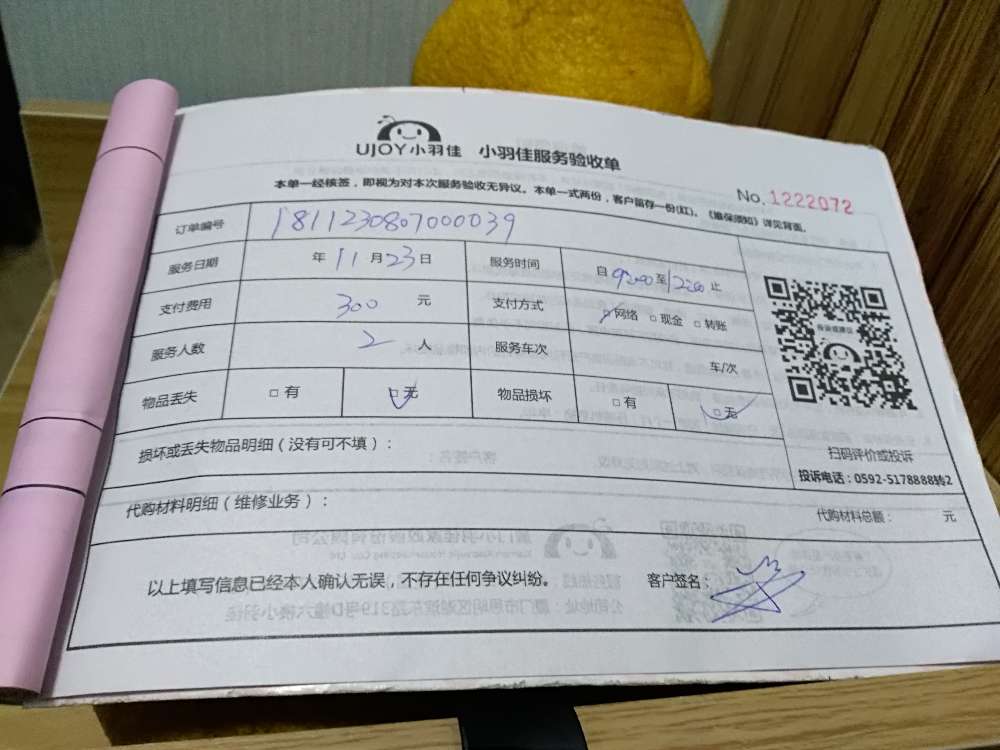 UJOY小羽佳 小羽佳服务验收单
本单一经核签，即视为对本次服务验收无异议。本单一式两份，客户留存一份(红)。《维保须知》详见背面。
No. 1222072
订单编号 181123080700039
服务日期 年 11 月 23 日 服务时间 自 9:00 至 12:00 止
支付费用 300 元 支付方式 □网络 □现金 □转账
服务人数 2 人 服务车次 车/次
物品丢失 □有 □无 物品损坏 □有 □无
扫码评价或投诉
投诉电话：0592-5178888转2
损坏或丢失物品明细（没有可不填）：
代购材料明细（维修业务）： 代购材料总额： 元
以上填写信息已经本人确认无误，不存在任何争议纠纷。 客户签名：